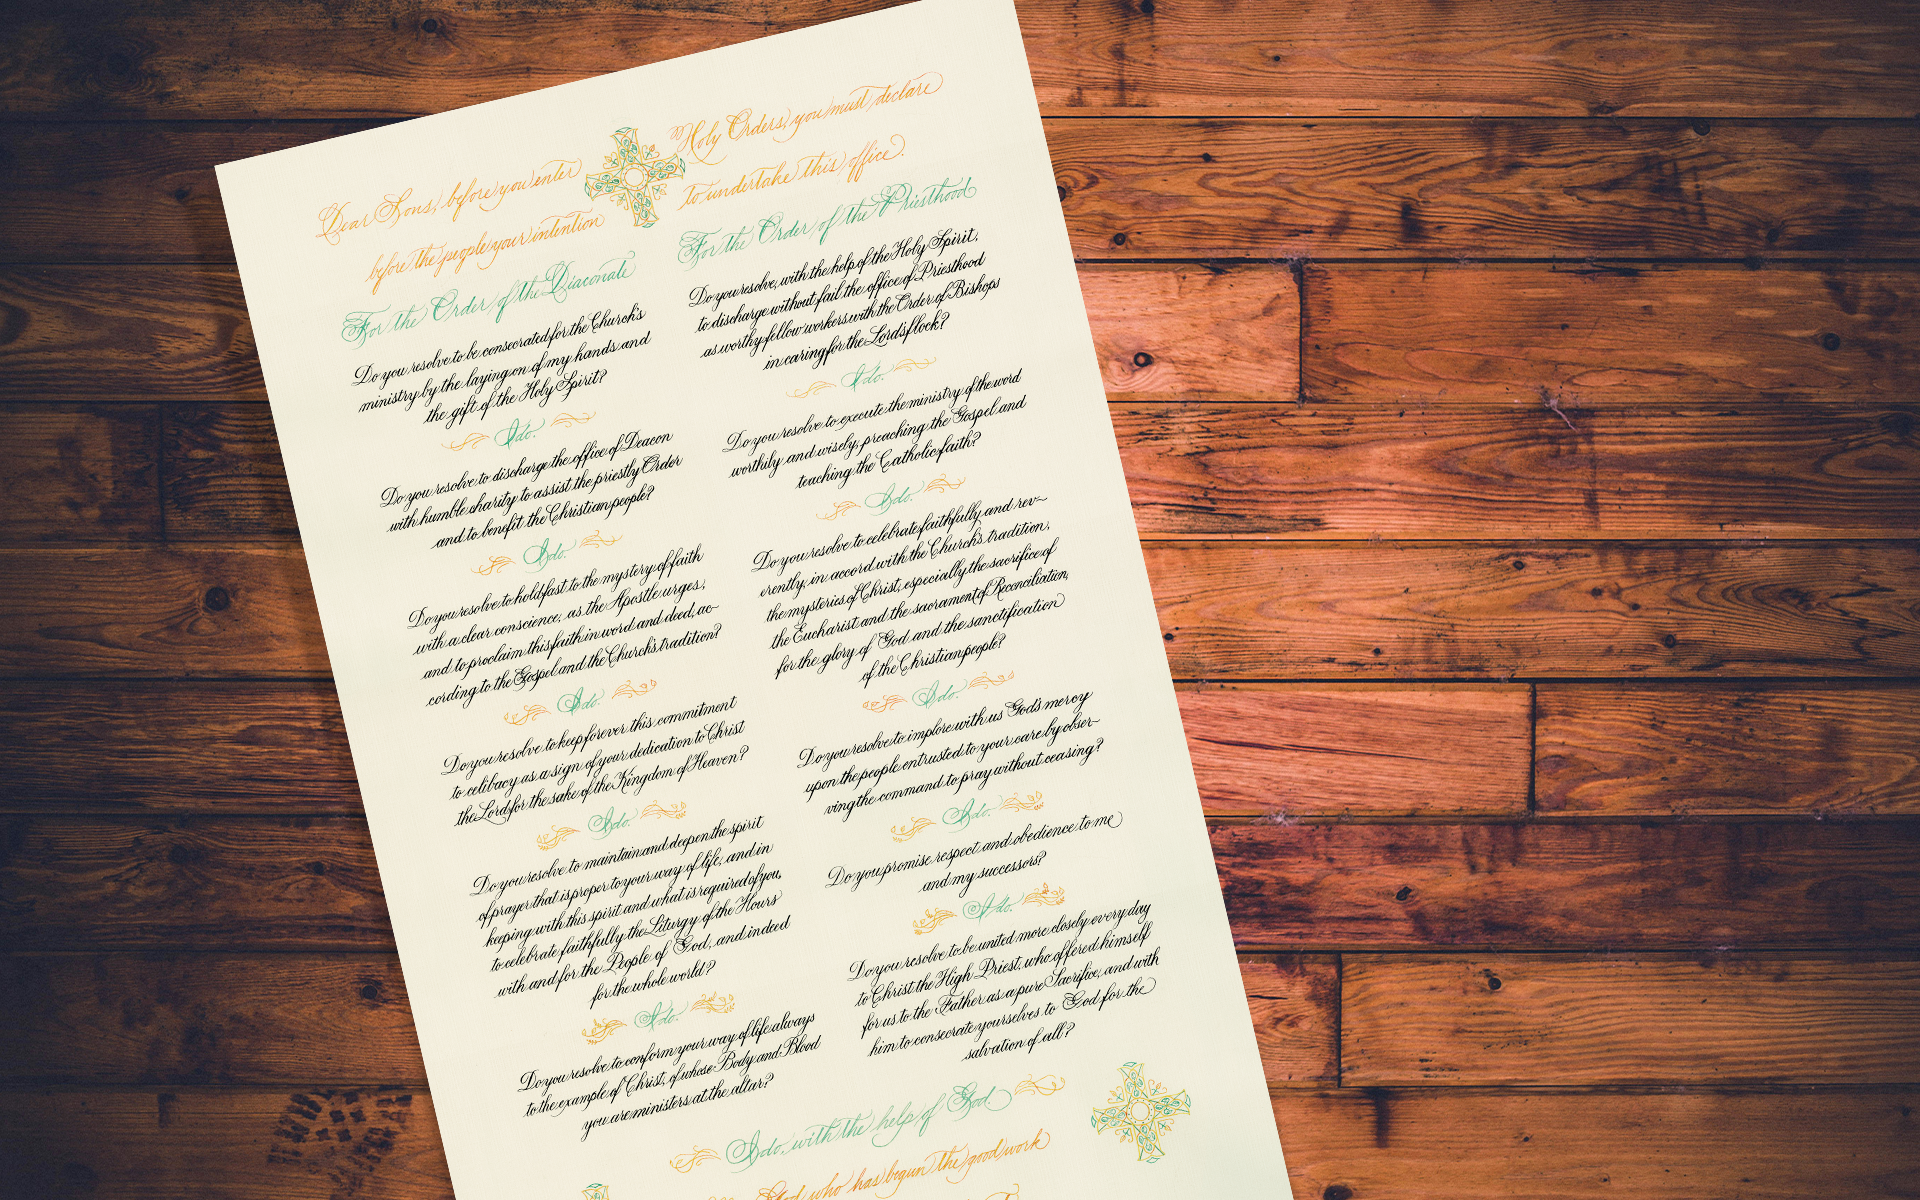 Dear Sons, before you enter Holy Orders, you must declare
before the people your intention to undertake this office.
For the Order of the Diaconate
Do you resolve to be consecrated for the Church's
ministry by the laying on of my hands and
the gift of the Holy Spirit?
I do.
Do you resolve to discharge the office of Deacon
with humble charity to assist the priestly Order
and to benefit the Christian people?
I do.
Do you resolve to hold fast to the mystery of faith
with a clear conscience, as the Apostle urges,
and to proclaim this faith in word and deed, ac-
cording to the Gospel and the Church's tradition?
I do.
Do you resolve to keep forever this commitment
to celibacy as a sign of your dedication to Christ
the Lord for the sake of the Kingdom of Heaven?
I do.
Do you resolve to maintain and deepen the spirit
of prayer that is proper to your way of life, and in
keeping with this spirit and what is required of you,
to celebrate faithfully the Liturgy of the Hours
with and for the People of God, and indeed
for the whole world?
I do.
Do you resolve to conform your way of life always
to the example of Christ, of whose Body and Blood
you are ministers at the altar?
For the Order of the Priesthood
Do you resolve, with the help of the Holy Spirit,
to discharge without fail the office of Priesthood
as worthy fellow workers with the Order of Bishops
in caring for the Lord's flock?
I do.
Do you resolve to execute the ministry of the word
worthily and wisely, preaching the Gospel and
teaching the Catholic faith?
I do.
Do you resolve to celebrate faithfully and rev-
erently, in accord with the Church's tradition,
the mysteries of Christ, especially the sacrifice of
the Eucharist and the sacrament of Reconciliation,
for the glory of God and the sanctification
of the Christian people?
I do.
Do you resolve to implore with us God's mercy
upon the people entrusted to your care by obser-
ving the command to pray without ceasing?
I do.
Do you promise respect and obedience to me
and my successors?
I do.
Do you resolve to be united more closely every day
to Christ the High Priest, who offered himself
for us to the Father as a pure Sacrifice, and with
him to consecrate yourselves to God for the
salvation of all?
I do, with the help of God.
God who has begun the good work